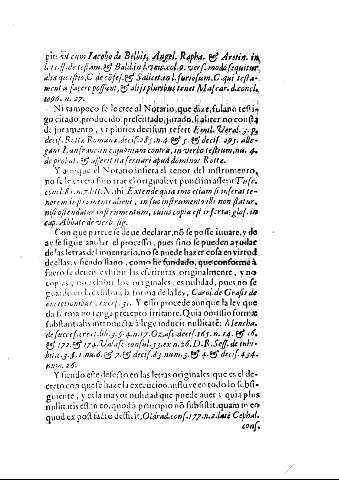 pit. vt cum Iacobo de Belvis, Angel. Rapha. & Aretin. in
l. 1. ff. de testam. & Bald. in l.                     modo sequitur,
alia quæstio, C. de cõfes. & Salicet. in l. furiosum. C. qui testa-
ment a facere possunt, & alijs pluribus tenet Mascard. concl.
1096. n. 27.
Ni tampoco se le cree al Notario, que dize, fulano testi-
go citado, producido, presentado, jurado, si aliter no consta
de juramento, y et plurics decisum refert Emil. Veral. 3. p.
decis. Rotæ Romana, decis. 285. n. 4. & 5. & decis. 295. alle-
gans Lanfrancum in                contra, in verbo testium, nu. 4.
de probat. & asserit ita servari apud dominos Rotæ.
Y aunque el Notario insiera el tenor del instrumento,
no se le cree sino trae el original; vt punctim asserit Tusc.
concl. 81. n. 7. litt. N. ibi: Extende quia imo etiam si inferat te-
norem instrumenti alicui, in suo instrumento illi non statur,
nisi ostendatur instrumentum, suita copia est ista: glos. in
cap. Abbate de verb. sig.
Con que parece se deue declarar, nõ se posse iuuare, y do
ay se sigue anular el processo, pues sino se pueden ayudar
de las letras del inuentario, no se puede hazer cosa en virtud
de ellas, y siendo llano, como he fundado, que conforme à
fuero se deuen exhibir las escrituras originalmente, y no
copias, no exhibir los originales, es nulidad, pues no se
guardò en la exhibita la forma de la ley, Carol. de Grassis de
exceptionibus, except. 31. Y esto procede aunque la ley que
dà forma no tenga precepto irritante. Quia omissio formæ
substantialis introductæ à lege inducit nullitatẽ: Menchac.
de succes. creat. lib. 3. §. 4. n. 17. Ozasc. decis. 163. n. 14. & 16.
& 172. & 174. Valasc. consul. 53. ex n. 26. D. R. Sesse de inhi-
bit. c. 3. §. 1. nu. 6. & 7. & decis. 83. num. 3. & 4. & decis. 434.
num. 26.
Y siendo este defecto en las letras originales, que es el de-
creto con que se haze la execucion, influye en todo lo subsi-
guiente, y es la mayor nulidad que puede auer; quia plus
nullitatis est in eo, quod à principio nõ subsistit, quam in eo
quod ex post facto deficit, Oldrad. cons. 177. n. 2. late Cephal.
cons.